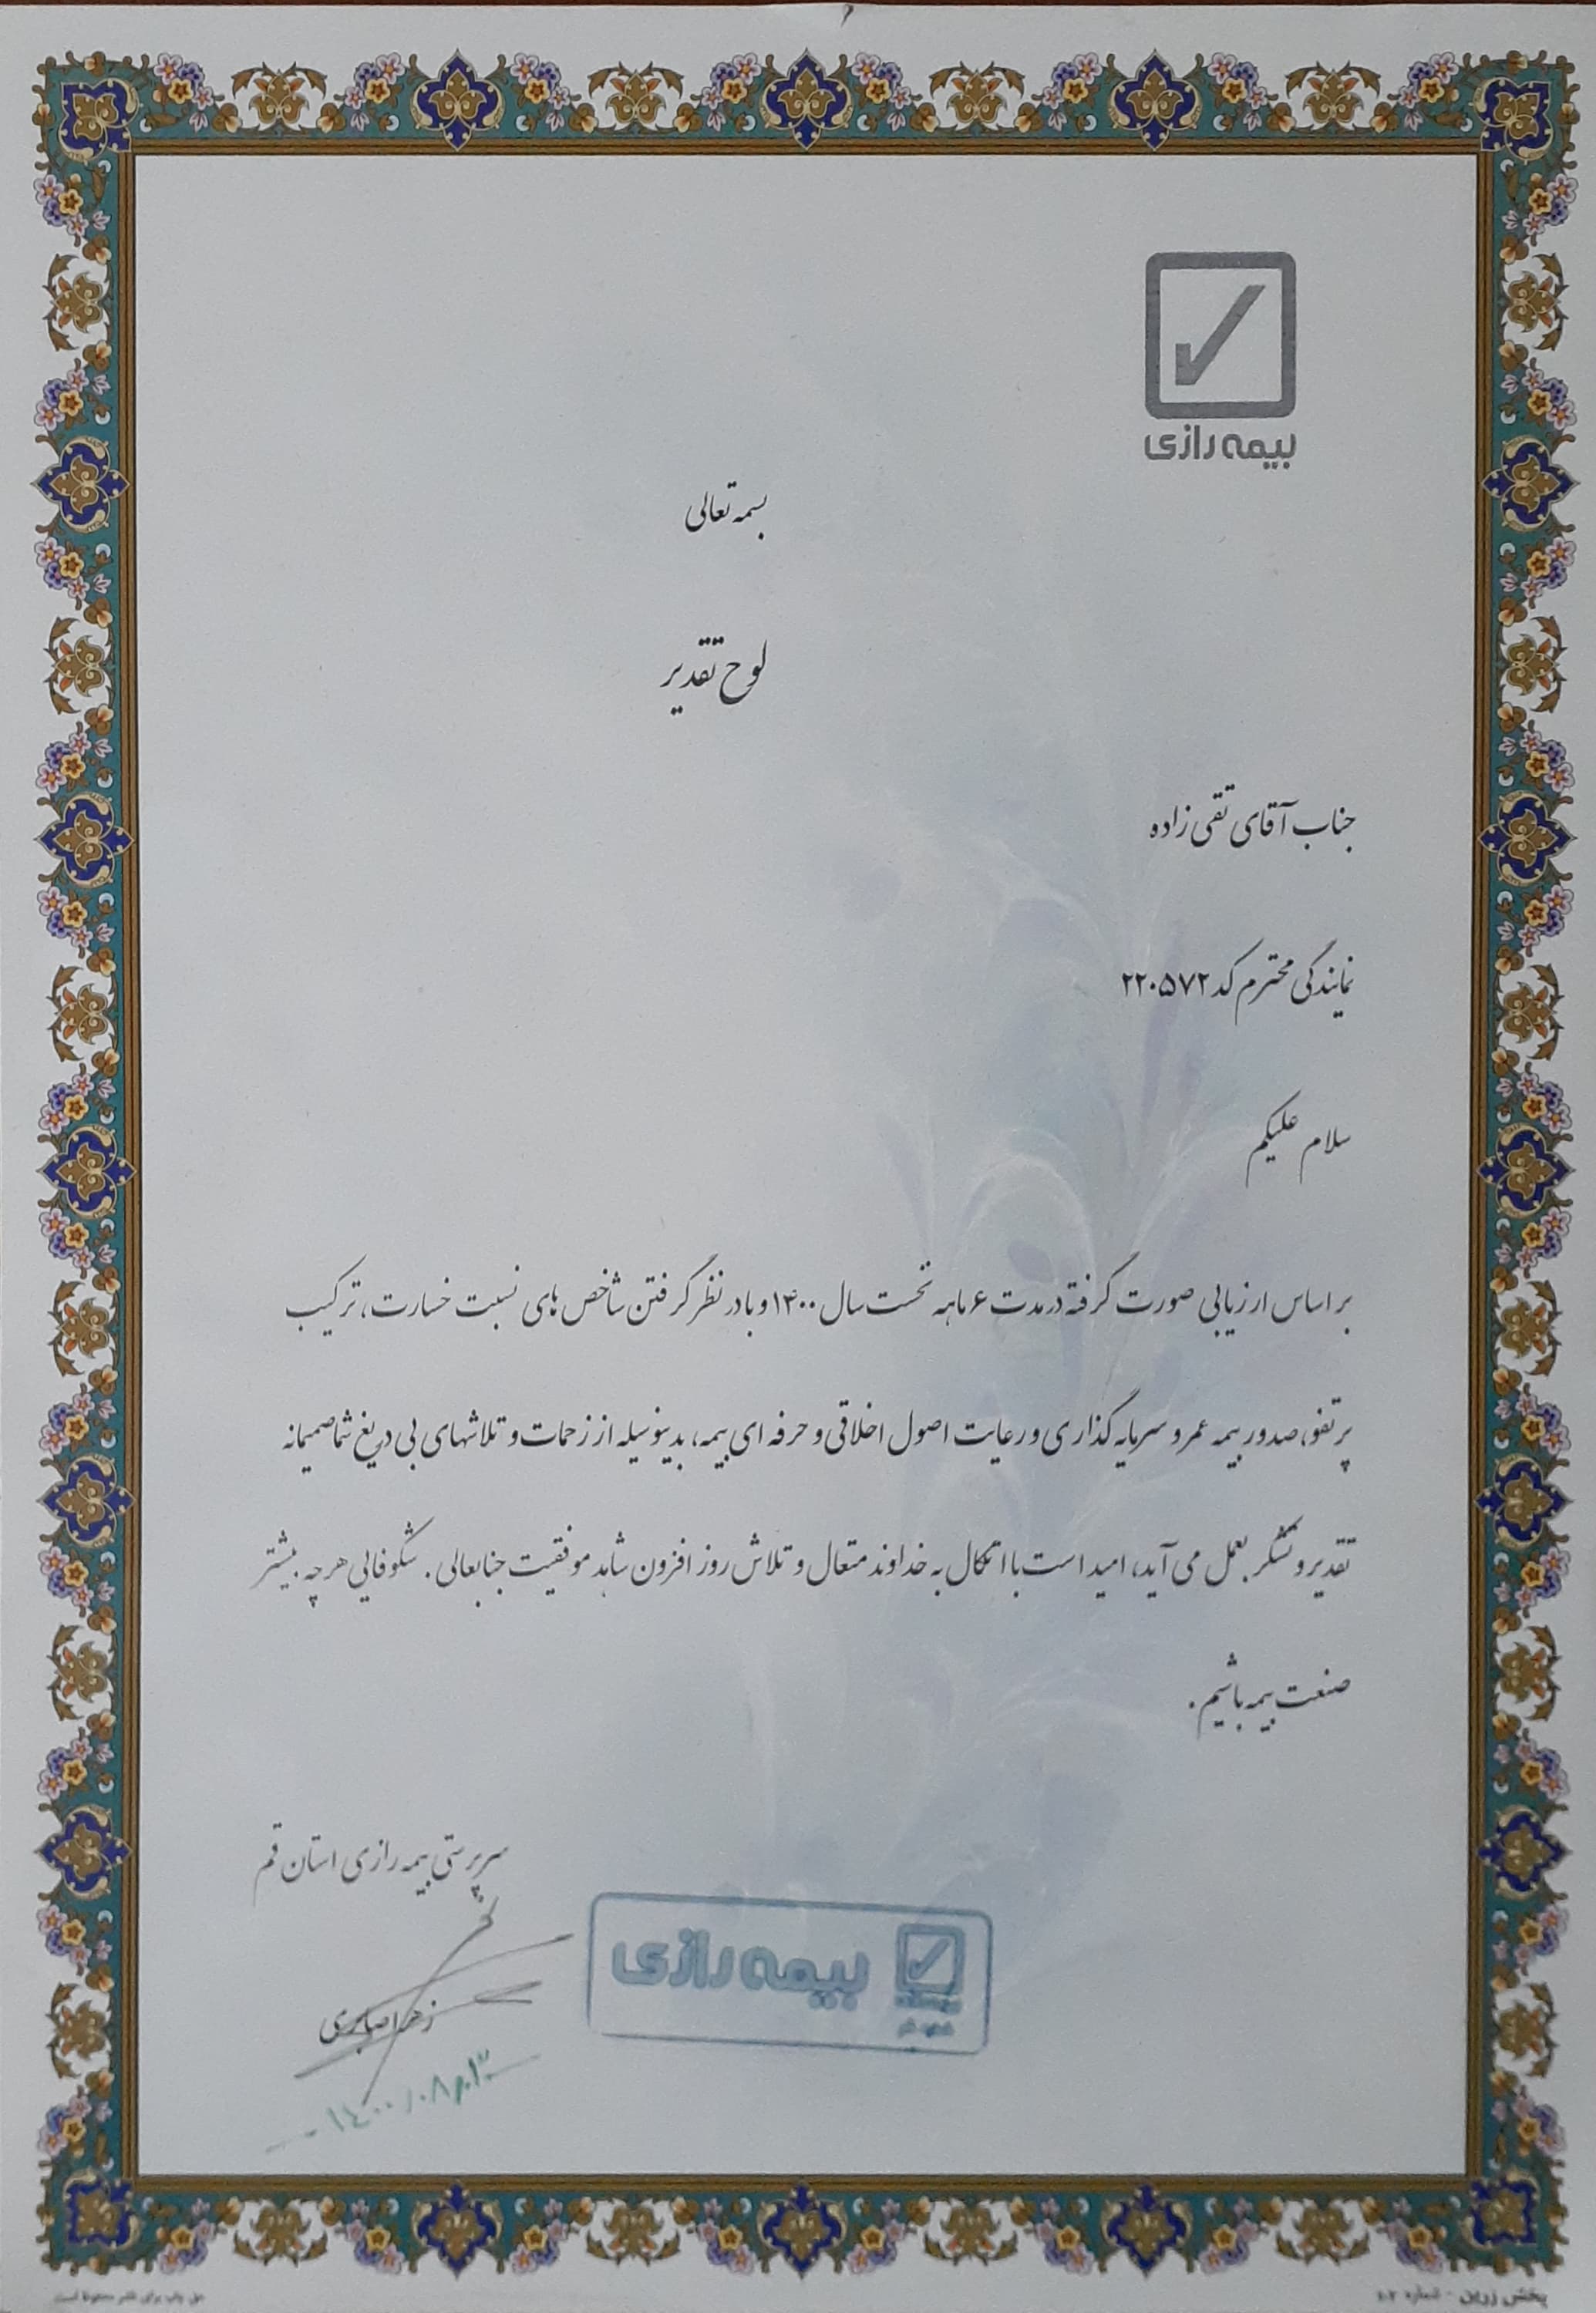 بیمه رازی
بسمه تعالی
لوح تقدیر
جناب آقای تقی زاده
نمایندگی محترم کد ۲۲۰۵۷۲
سلام علیکم
بر اساس ارزیابی صورت گرفته در مدت ۶ ماهه نخست سال ۱۴۰۰ و با در نظر گرفتن شاخص های نسبت خسارت، ترکیب
پرتفو، صدور بیمه عمر و سرمایه گذاری و رعایت اصول اخلاقی و حرفه ای بیمه، بدینوسیله از زحمات و تلاشهای بی دریغ شما صمیمانه
تقدیر و تشکر بعمل می آید، امید است با اتکال به خداوند متعال و تلاش روز افزون شاهد موفقیت جنابعالی . شکوفایی هر چه بیشتر
صنعت بیمه باشیم .
سرپرستی بیمه رازی استان قم
بیمه رازی
زهرا صابری
۱۴۰۰/۰۸/۰۱
پخش زرین - شماره ۱۰۲
حق چاپ برای ناشر محفوظ است